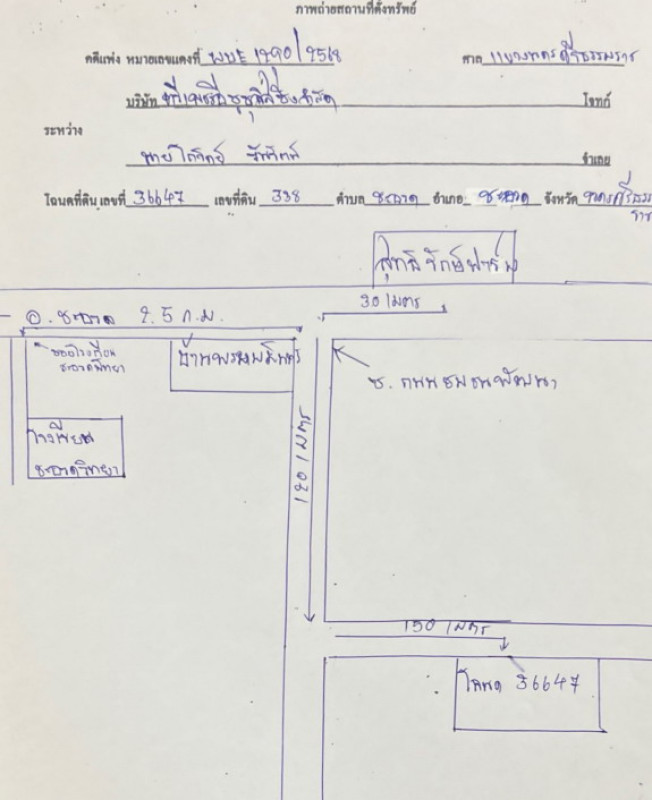 ภาพถ่ายสถานที่ตั้งทรัพย์
คดีแพ่ง หมายเลขแดงที่ ผบE 1790/2568 ศาล แขวงนครศรีธรรมราช
บริษัท จำกัด โจทก์
ระหว่าง
นาย จำเลย
โฉนดที่ดิน เลขที่ 36647 เลขที่ดิน 338 ตำบล ชะอวด อำเภอ ชะอวด จังหวัด นครศรีธรรมราช
ฟาร์ม
30 เมตร
อ. ชะอวด 2.5 ก.ม.
ซอยโรงเรียน
ชะอวดวิทยา
ซ. ถนนชมชนพัฒนา
โรงเรียน
ชะอวดวิทยา
130 เมตร
150 เมตร
โฉนด 36647